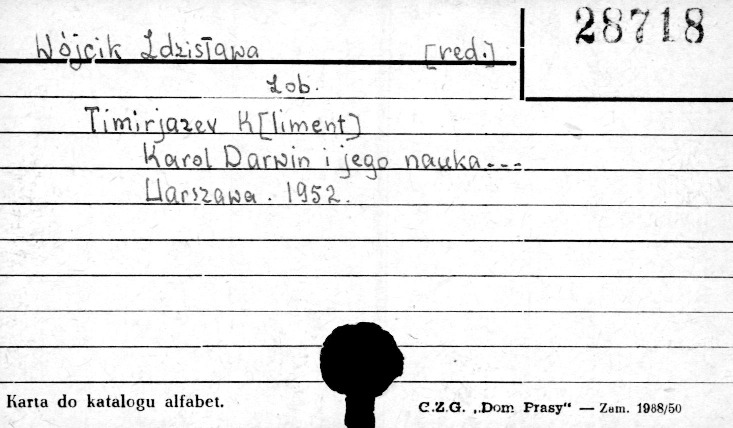 28718
Wójcik Zdzisława [red.]
Zob.
Timirjazev K[liment]
Karol Darwin i jego nauka...
Warszawa. 1952.
Karta do katalogu alfabet.
C.Z.G. „Dom Prasy“ — Zam. 1988/50